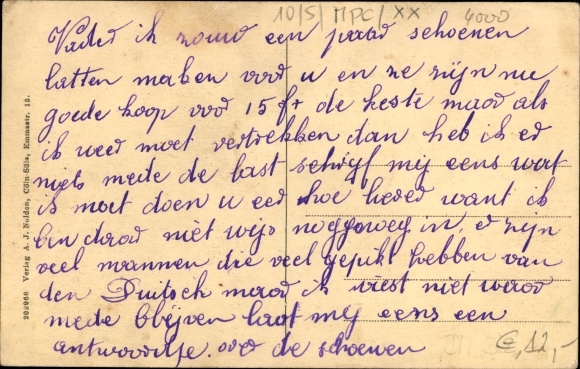 10/5/ MPC/XX 4000
Vader ik zoud een paar schoenen
latten maken voor u en ze zijn nu
goede koop voor 15 fr de beste maar als
ik weer moet vertrekken dan heb ik er
niets mede de last schrijf mij eens wat
ik moet doen u eer hoe liever want ik
ben daar niet wijs noggeweg in, er zijn
veel mannen die veel gepikt hebben van
den Duitsch maar ik wiest niet waar
mede blijven laat mij eens een
antwoordtje over de schoenen
€,12,-
202966 Verlag A. J. Nolden, Cöln-Sülz, Emmastr. 15.